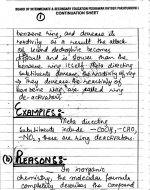 BOARD OF INTERMEDIATE & SECONDARY EDUCATION
CONTINUATION SHEET
benzene ring, and decrease its
reactivity as a result the attack
of second electrophile becomes
difficult and is slower than the
benzene ring itself. Meta directing
substituents decrease the reactivity of ring
they decrease the reactivity of
benzene ring are called ring
de-activators.
EXAMPLES:-
Meta directing
substituents include -COOH, -CHO,
-NO₂, these are ring deactivators.
(b) REASONS:-
In inorganic
chemistry, the molecular formula
completely describes the compound